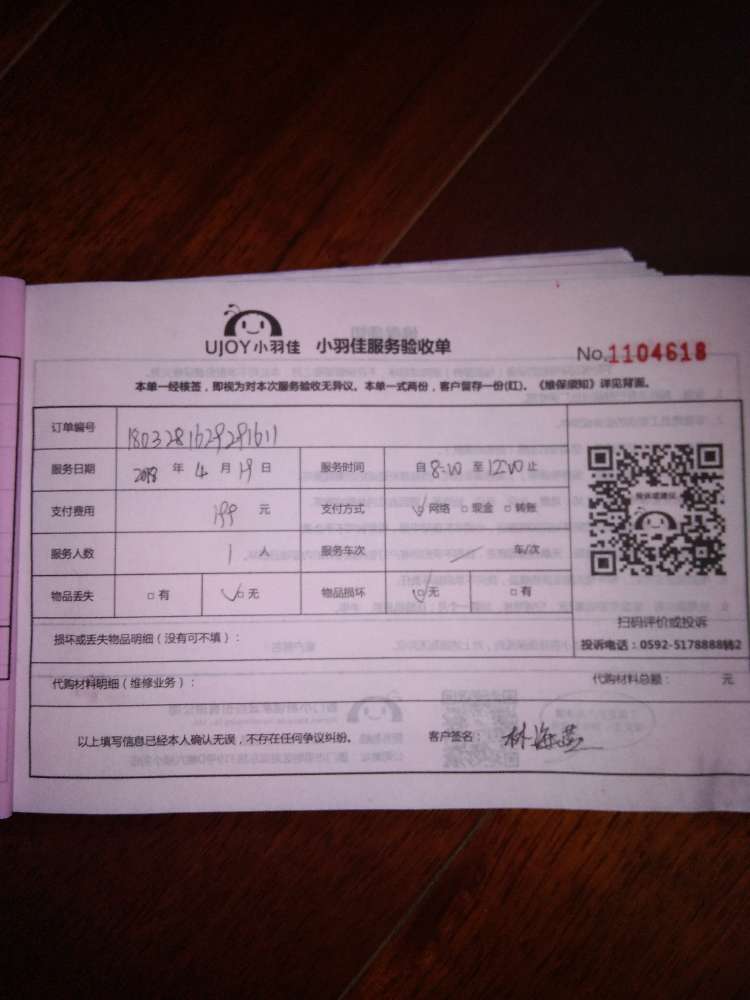 UJOY小羽佳 小羽佳服务验收单 No.1104618
本单一经核签，即视为对本次服务验收无异议。本单一式两份，客户留存一份(红)。《维保须知》详见背面。
订单编号 1803281629291611
服务日期 2018 年 4 月 19 日 服务时间 自 8:00 至 12:00 止
支付费用 199 元 支付方式 ☑网络 □现金 □转账
服务人数 1 人 服务车次 / 车/次
物品丢失 □有 ☑无 物品损坏 ☑无 □有
扫码评价或投诉
损坏或丢失物品明细（没有可不填）： 投诉电话：0592-5178888转2
代购材料明细（维修业务）： 代购材料总额： 元
以上填写信息已经本人确认无误，不存在任何争议纠纷。 客户签名： 林海燕